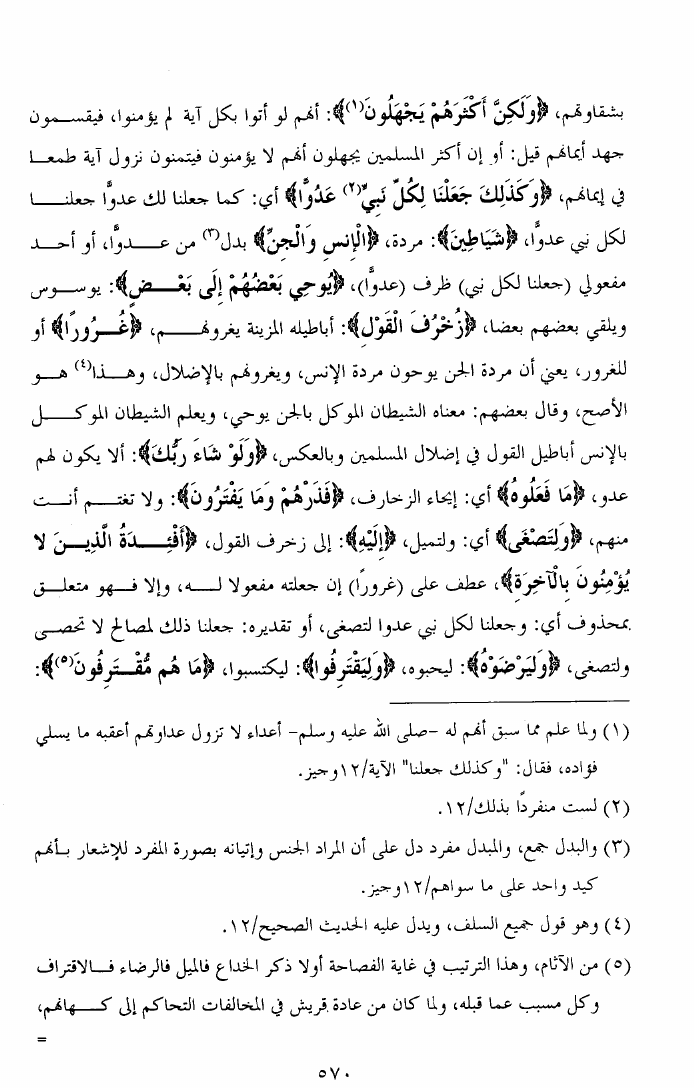 بشقاوتهم، ﴿وَلَكِنَّ أَكْثَرَهُمْ يَجْهَلُونَ(١)﴾: أنهم لو أتوا بكل آية لم يؤمنوا، فيقسمون
جهد أيمانهم قيل: أو إن أكثر المسلمين يجهلون أنهم لا يؤمنون فيتمنون نزول آية طمعا
في إيمانهم، ﴿وَكَذَلِكَ جَعَلْنَا لِكُلِّ نَبِيٍّ(٢) عَدُوًّا﴾ أي: كما جعلنا لك عدوًّا جعلنا
لكل نبي عدوًّا، ﴿شَيَاطِينَ﴾: مردة، ﴿الْإِنسِ وَالْجِنِّ﴾ بدل(٣) من عدوًّا، أو أحد
مفعولي (جعلنا لكل نبي) ظرف (عدوًّا)، ﴿يُوحِي بَعْضُهُمْ إِلَى بَعْضٍ﴾: يوسوس
ويلقي بعضهم بعضا، ﴿زُخْرُفَ الْقَوْلِ﴾: أباطيله المزينة يغرونهم، ﴿غُرُورًا﴾ أو
للغرور، يعني أن مردة الجن يوحون مردة الإنس، ويغرونهم بالإضلال، وهذا(٤) هو
الأصح، وقال بعضهم: معناه الشيطان الموكل بالجن يوحي، ويعلم الشيطان الموكل
بالإنس أباطيل القول في إضلال المسلمين وبالعكس، ﴿وَلَوْ شَاءَ رَبُّكَ﴾: ألا يكون لهم
عدو، ﴿مَا فَعَلُوهُ﴾ أي: إيحاء الزخارف، ﴿فَذَرْهُمْ وَمَا يَفْتَرُونَ﴾: ولا تغتم أنت
منهم، ﴿وَلِتَصْغَى﴾ أي: ولتميل، ﴿إِلَيْهِ﴾: إلى زخرف القول، ﴿أَفْئِدَةُ الَّذِينَ لَا
يُؤْمِنُونَ بِالْآخِرَةِ﴾، عطف على (غرورًا) إن جعلته مفعولا له، وإلا فهو متعلق
بمحذوف أي: وجعلنا لكل نبي عدوا لتصغى، أو تقديره: جعلنا ذلك لمصالح لا تحصى
ولتصغى، ﴿وَلِيَرْضَوْهُ﴾: ليحبوه، ﴿وَلِيَقْتَرِفُوا﴾: ليكتسبوا، ﴿مَا هُم مُّقْتَرِفُونَ(٥)﴾:
(١) ولما علم مما سبق أنهم له -صلى الله عليه وسلم- أعداء لا تزول عداوتهم أعقبه ما يسلي
فؤاده، فقال: "وكذلك جعلنا" الآية/١٢وجيز.
(٢) لست منفردًا بذلك/١٢.
(٣) والبدل جمع، والمبدل مفرد دل على أن المراد الجنس وإتيانه بصورة المفرد للإشعار بأنهم
كيد واحد على ما سواهم/١٢وجيز.
(٤) وهو قول جميع السلف، ويدل عليه الحديث الصحيح/١٢.
(٥) من الآثام، وهذا الترتيب في غاية الفصاحة أولا ذكر الخداع فالميل فالرضاء فالاقتراف
وكل مسبب عما قبله، ولما كان من عادة قريش في المخالفات التحاكم إلى كهانهم،
=
٥٧٠